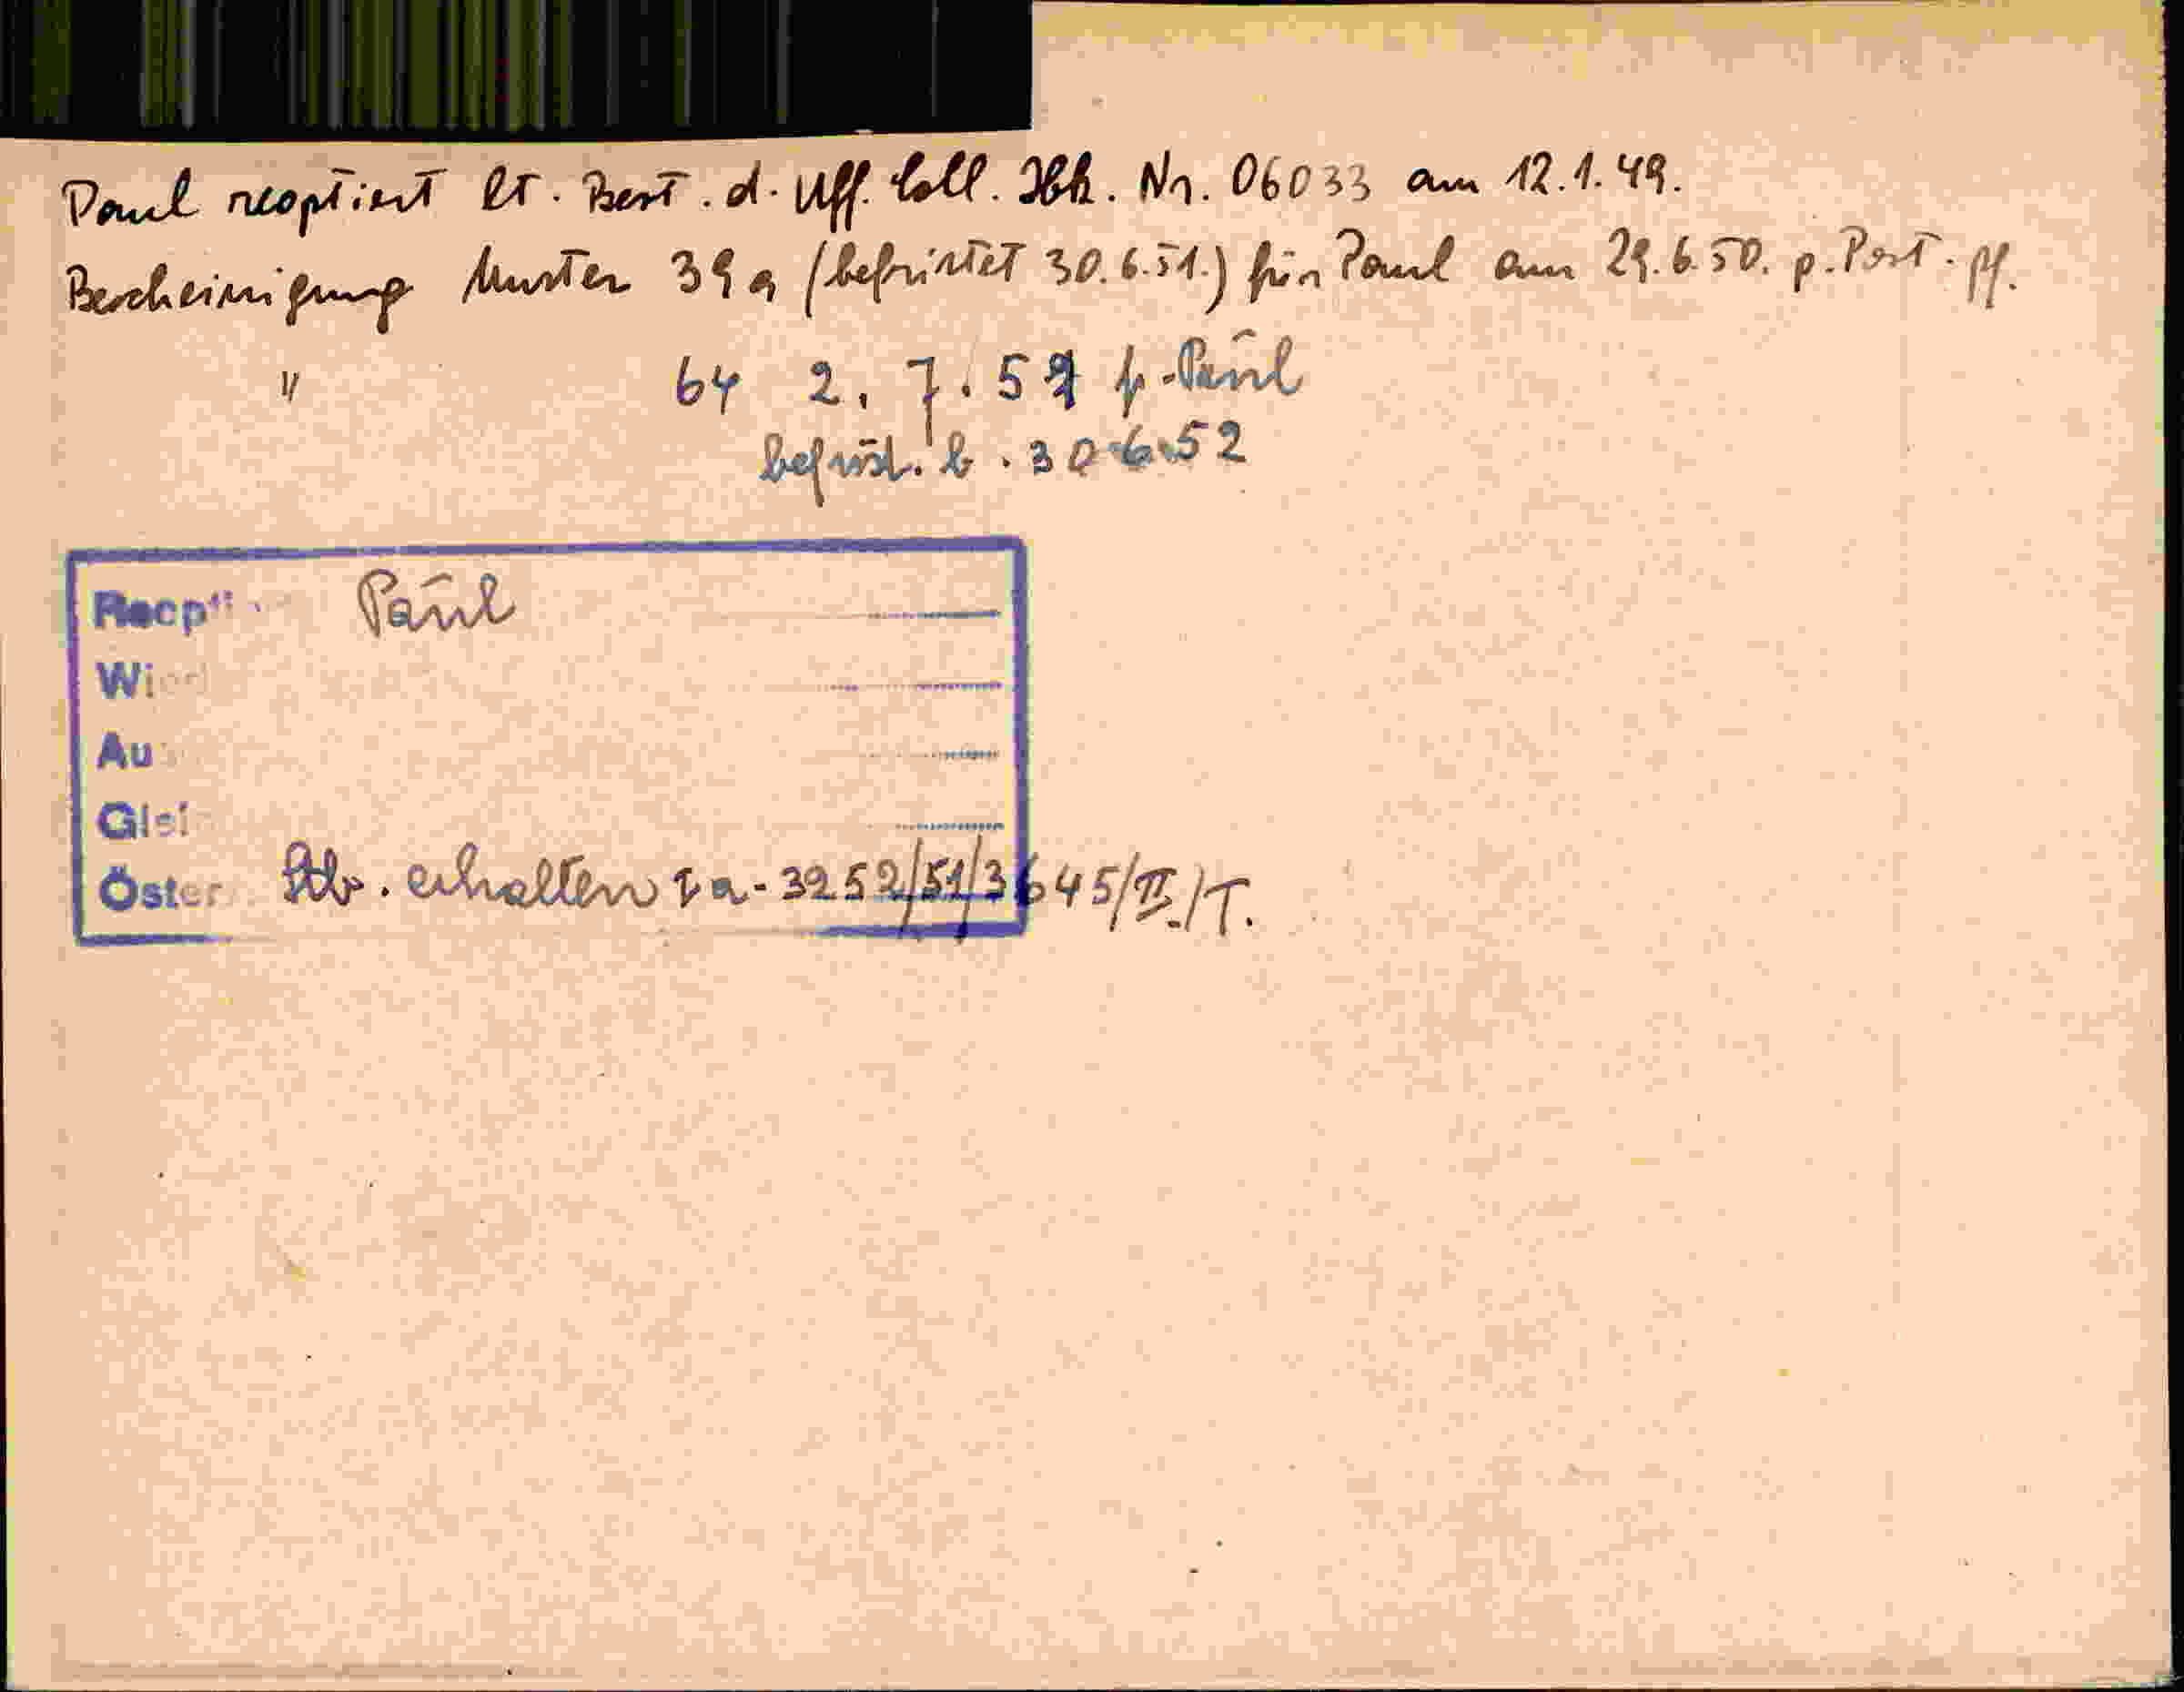 Paul reoptiert lt. Best. d. Uff. Coll. Ibk. Nr. 06033 am 12.1.49.
Bescheinigung Muster 39a (befristet 30.6.51.) für Paul am 29.6.50. p. Post. pf.
" 64 2. 7. 51 f. Paul
befrist. b. 30.6.52
Reopti Paul
Wi
Au
Glei
Öster Stb. erhalten Ia-3252/51/3645/II./T.